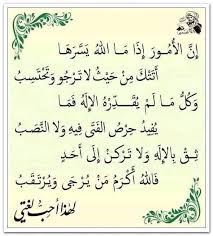 إِنَّ الأُمُورَ إِذَا مَا اللهُ يَسَّرَهَا
أَتَتْكَ مِنْ حَيْثُ لَا تَرْجُو وَتَحْتَسِبُ
وَكُلُّ مَا لَمْ يُقَدِّرْهُ الإِلَهُ فَمَا
يُفِيدُ حِرْصُ الفَتَى فِيهِ وَلَا النَّصَبُ
ثِقْ بِالإِلَهِ وَلَا تَرْكَنْ إِلَى أَحَدٍ
فَاللهُ أَكْرَمُ مَنْ يُرْجَى وَيُرْتَقَبُ
لهذا أحب لغتي